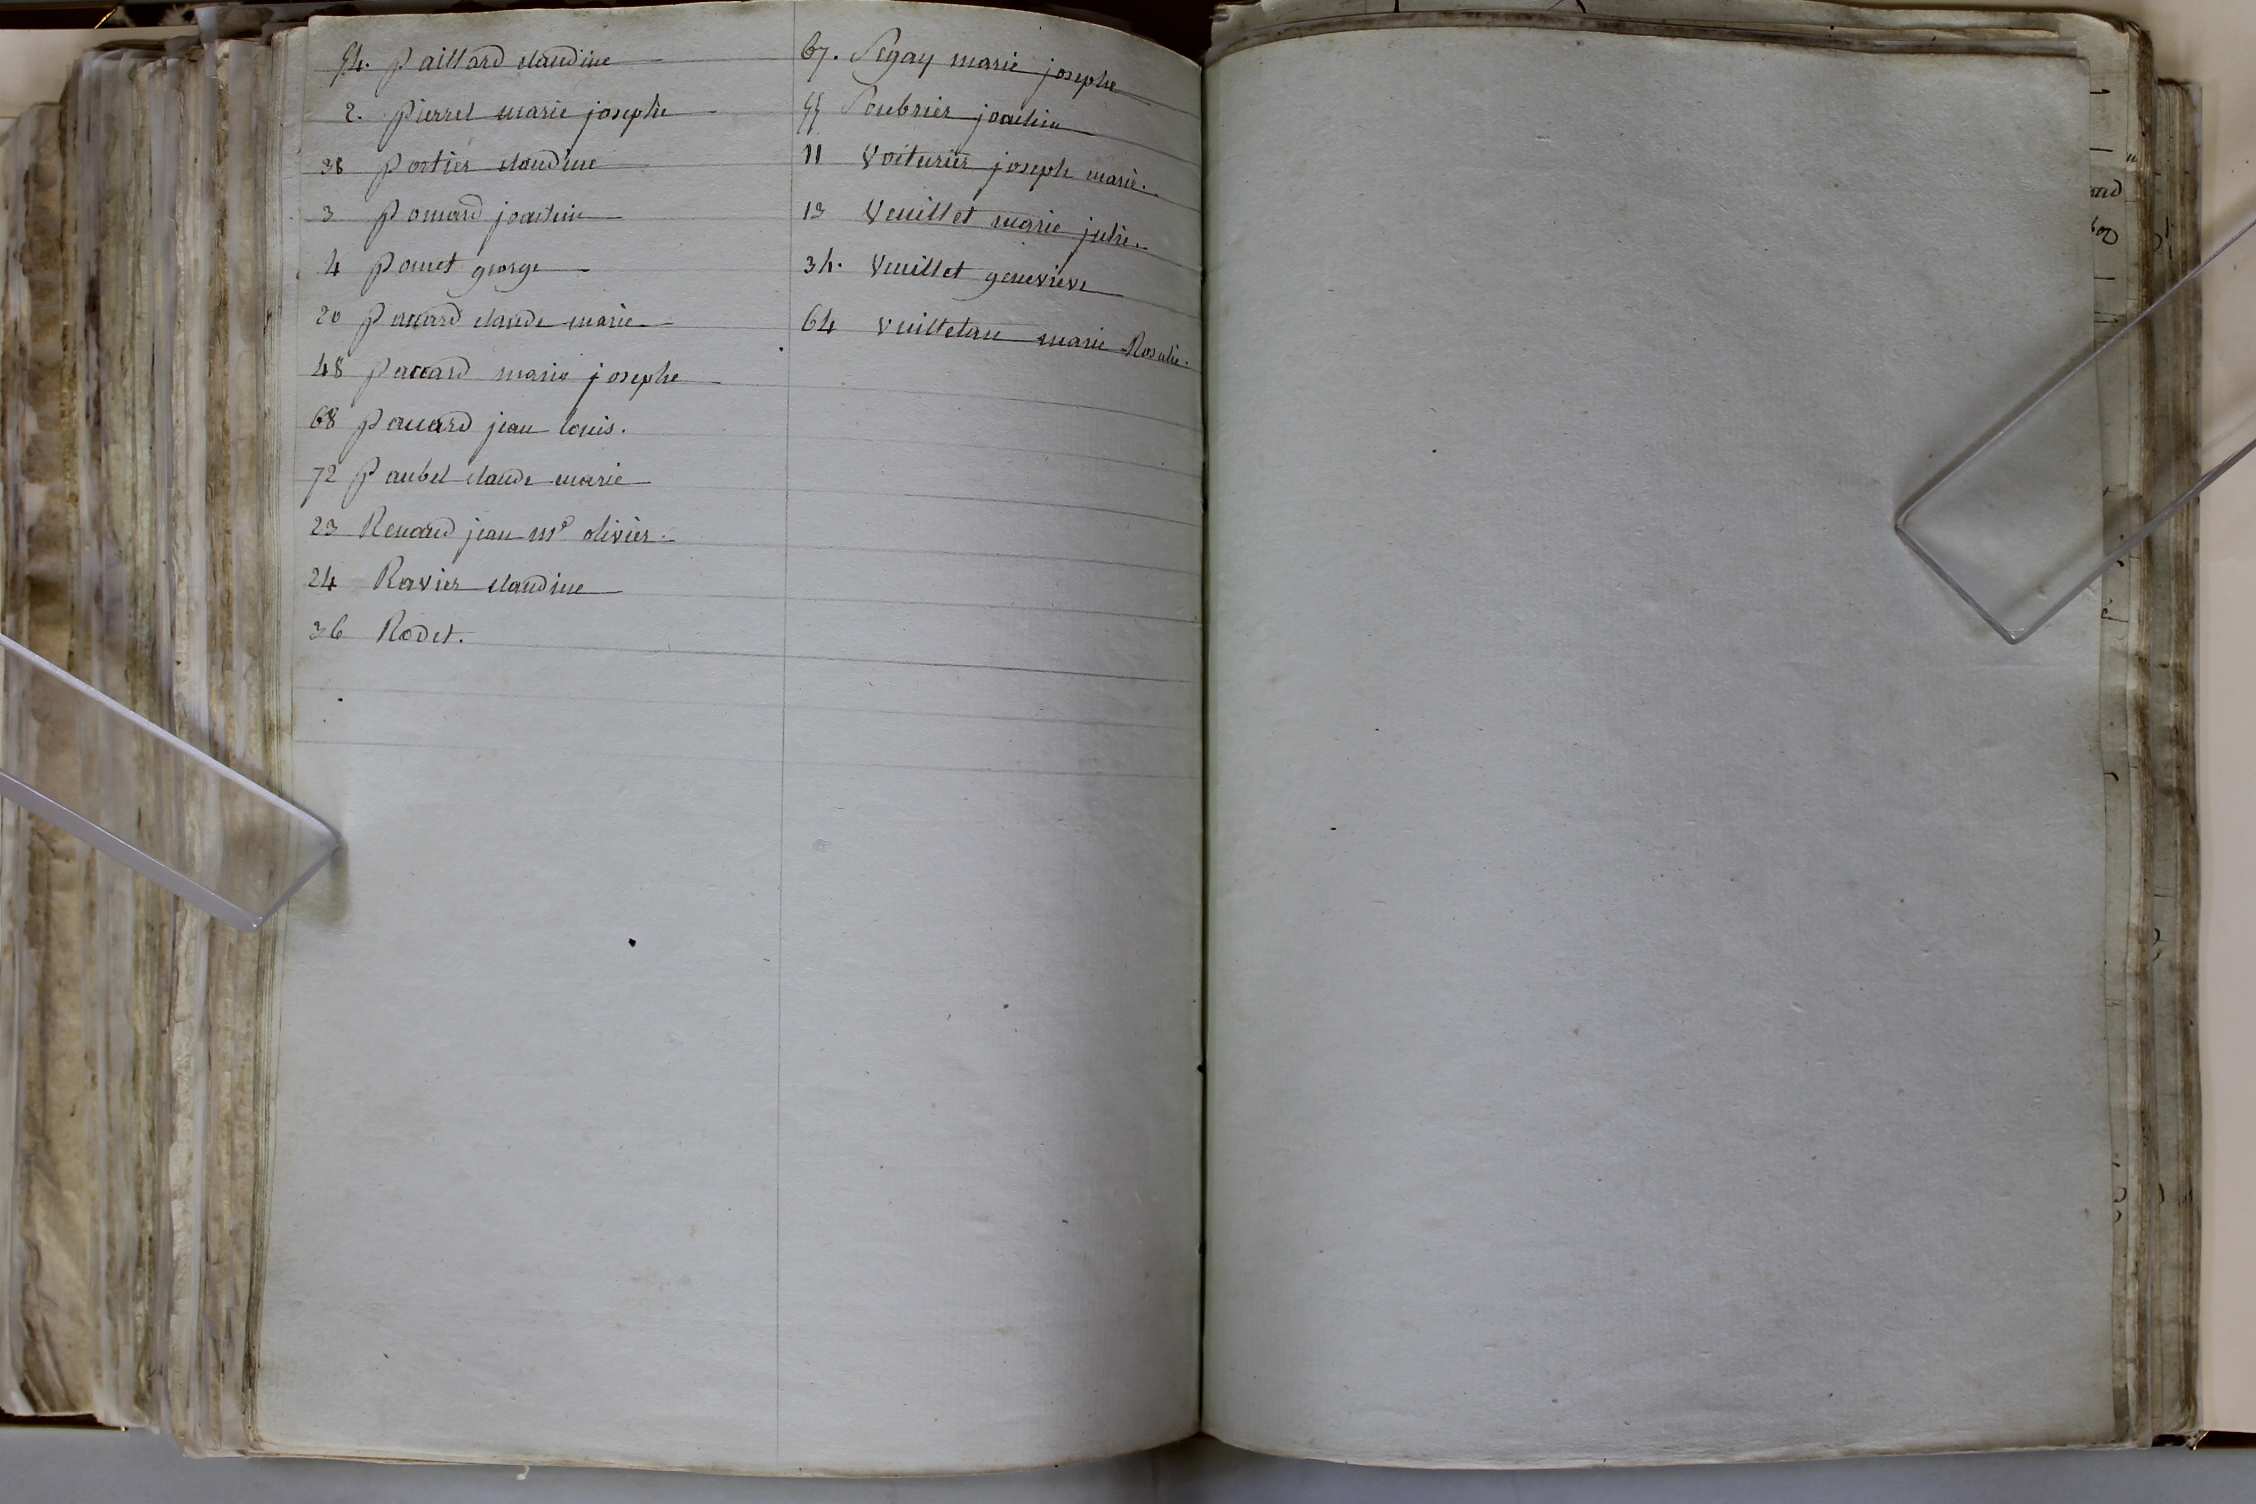 54. Paillard claudine
2. Pierrel marie josephe
38 Portier claudine
3 Pomard joachim
4 Pomet george
20 Paccard claude marie
48 Paccard marie josephe
68 Paccard jean louis.
72 Paubel claude marie
23 Renaud jean m.e olivier.
24 Ravier claudine
36 Rodet.
67. Segay marie josephe
55 Soubrier joachim
11 Voiturier joseph marie.
13 Vuillet marie julie.
34. Vuillet genevieve
64 Vuilletan marie Rosalie.